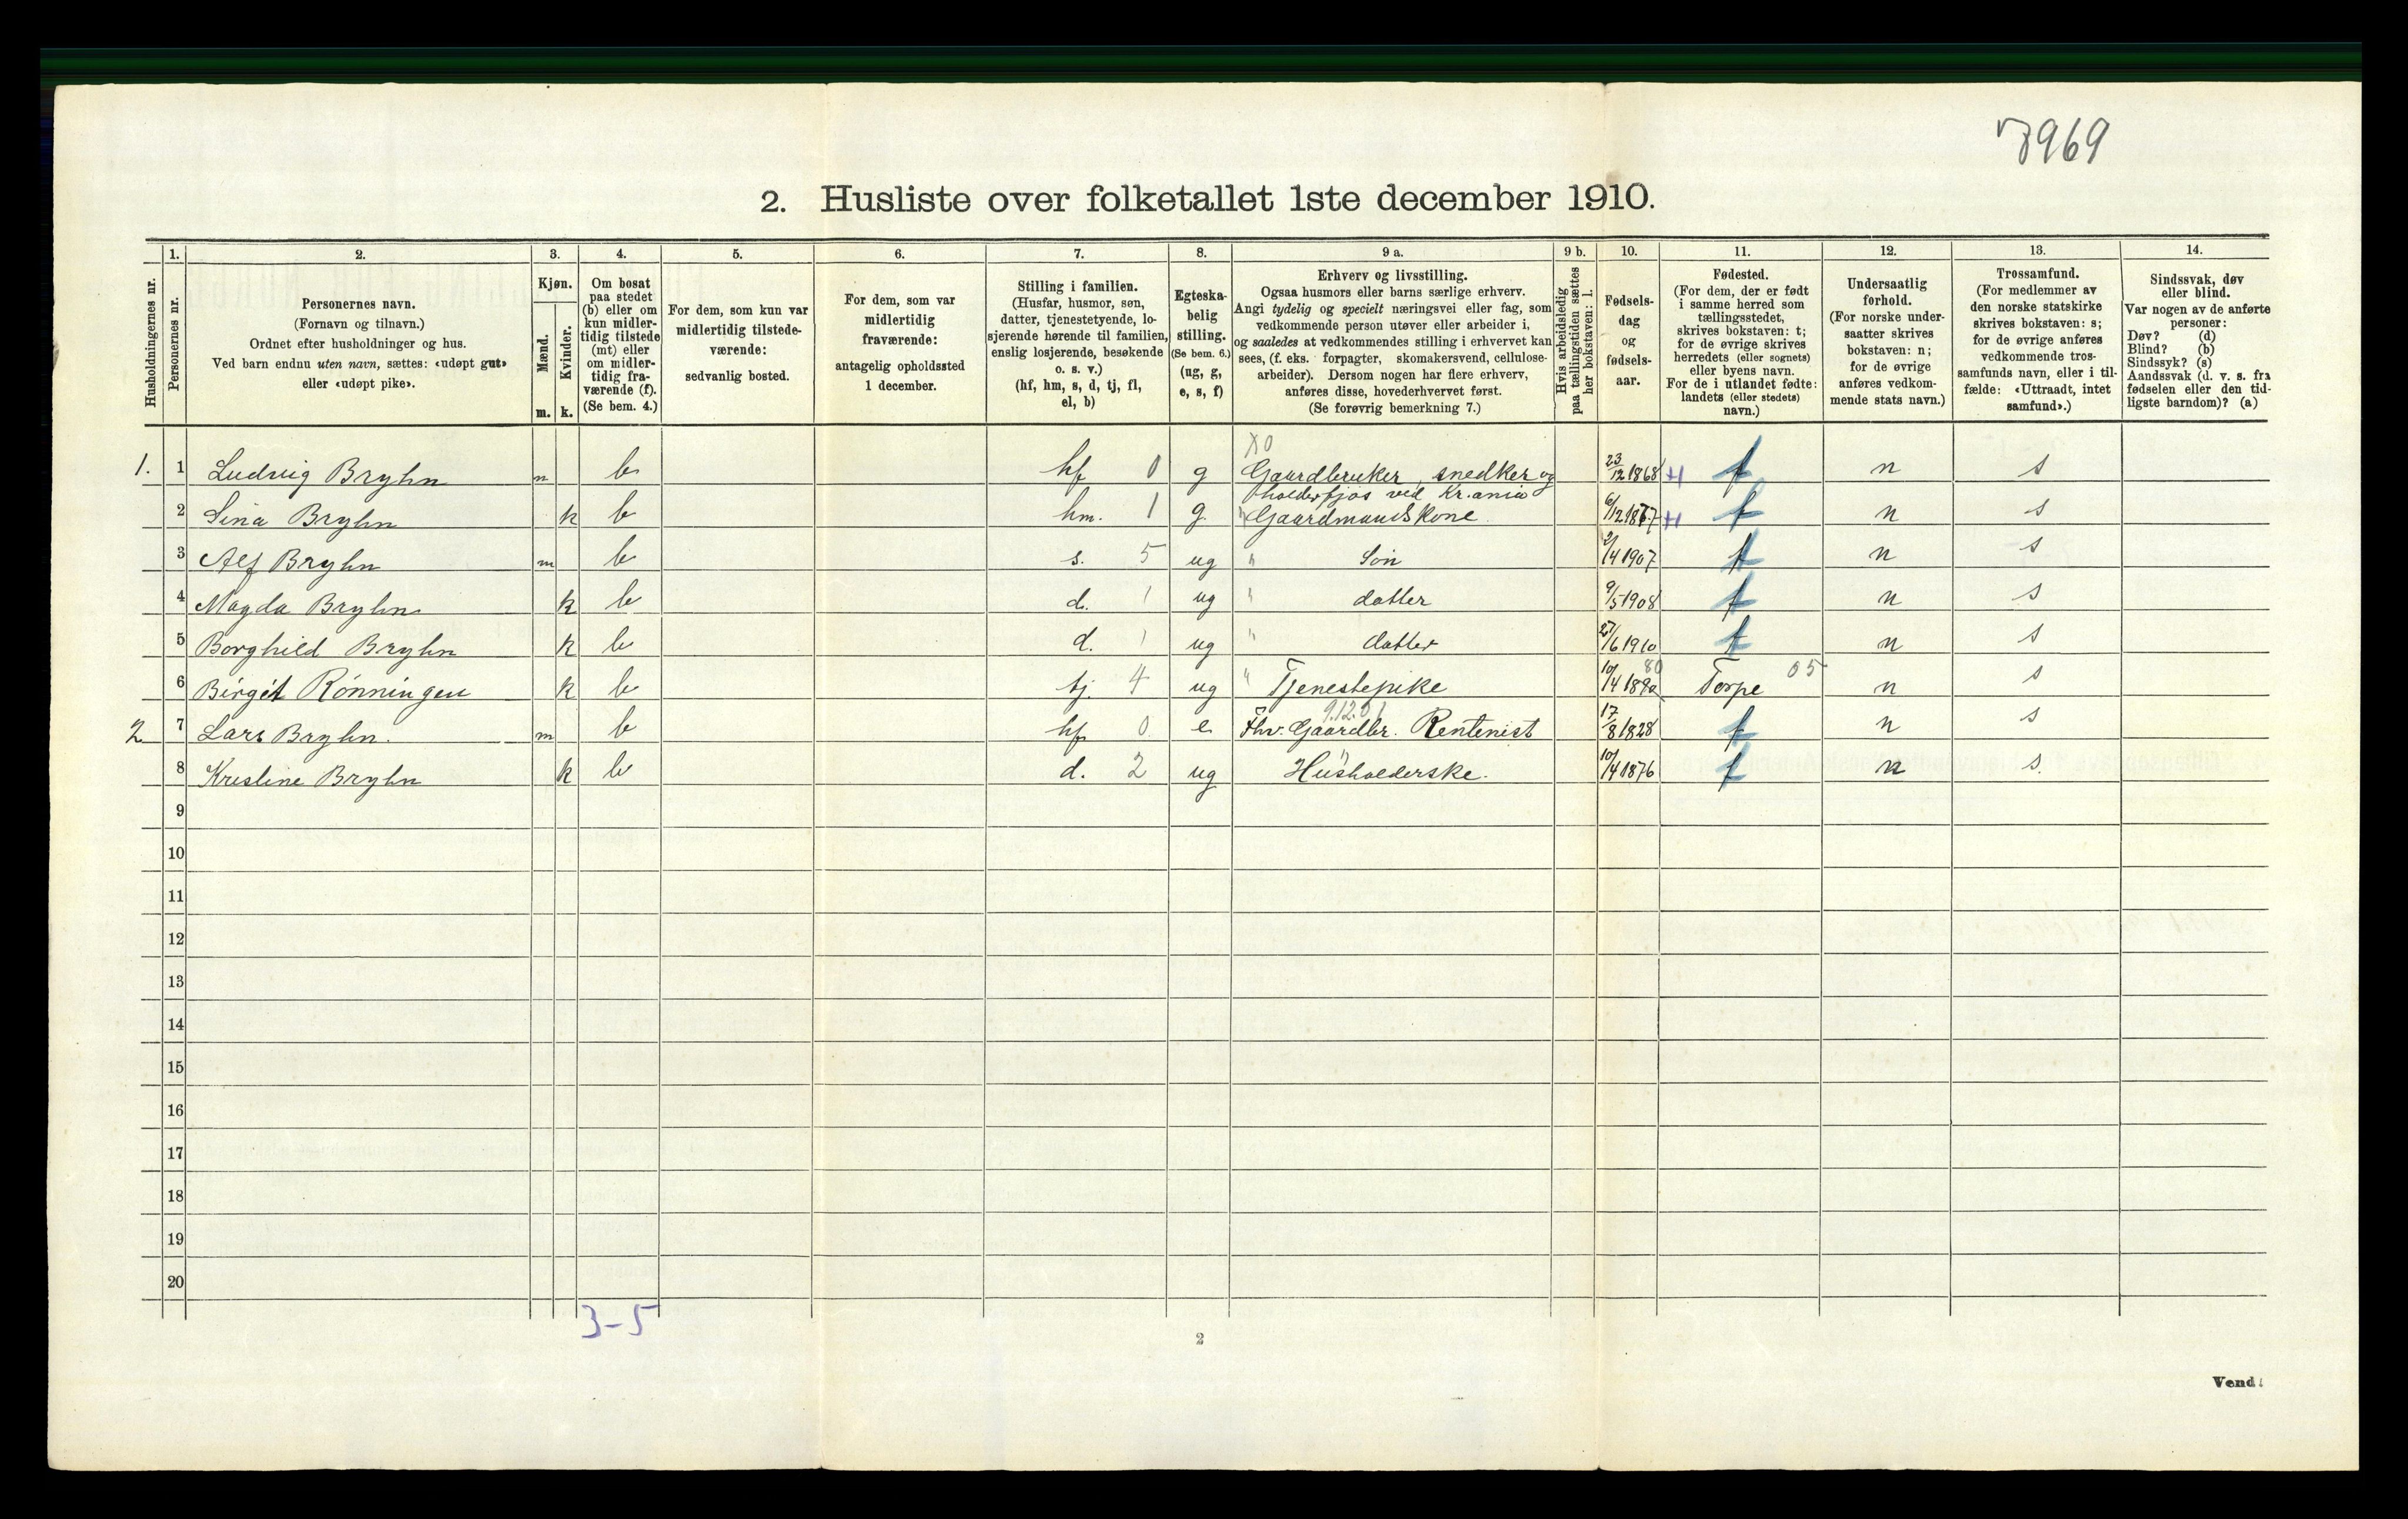 7969
2. Husliste over folketallet 1ste december 1910.
Husholdningernes nr.
1.
Personernes nr.
2.
Personernes navn.
(Fornavn og tilnavn.)
Ordnet efter husholdninger og hus.
Ved barn endnu uten navn, sættes: «udøpt gut»
eller «udøpt pike».
3.
Kjøn.
Mænd.
Kvinder.
m. k.
4.
Om bosat
paa stedet
(b) eller om
kun midler-
tidig tilstede
(mt) eller
om midler-
tidig fra-
værende (f).
(Se bem. 4.)
5.
For dem, som kun var
midlertidig tilstede-
værende:
sedvanlig bosted.
6.
For dem, som var
midlertidig
fraværende:
antagelig opholdssted
1 december.
7.
Stilling i familien.
(Husfar, husmor, søn,
datter, tjenestetyende, lo-
sjerende hørende til familien,
enslig losjerende, besøkende
o. s. v.)
(hf, hm, s, d, tj, fl,
el, b)
8.
Egteska-
belig
stilling.
(Se bem. 6.)
(ug, g,
e, s, f)
9 a.
Erhverv og livsstilling.
Ogsaa husmors eller barns særlige erhverv.
Angi tydelig og specielt næringsvei eller fag, som
vedkommende person utøver eller arbeider i,
og saaledes at vedkommendes stilling i erhvervet kan
sees, (f. eks. forpagter, skomakersvend, cellulose-
arbeider). Dersom nogen har flere erhverv,
anføres disse, hovederhvervet først.
(Se forøvrig bemerkning 7.)
9 b.
Hvis arbeidsledig
paa tællingstiden sættes
her bokstaven: l.
10.
Fødsels-
dag
og
fødsels-
aar.
11.
Fødested.
(For dem, der er født
i samme herred som
tællingsstedet,
skrives bokstaven: t;
for de øvrige skrives
herredets (eller sognets)
eller byens navn.
For de i utlandet fødte:
landets (eller stedets)
navn.)
12.
Undersaatlig
forhold.
(For norske under-
saatter skrives
bokstaven: n;
for de øvrige
anføres vedkom-
mende stats navn.)
13.
Trossamfund.
(For medlemmer av
den norske statskirke
skrives bokstaven: s;
for de øvrige anføres
vedkommende tros-
samfunds navn, eller i til-
fælde: «Uttraadt, intet
samfund».)
14.
Sindssvak, døv
eller blind.
Var nogen av de anførte
personer:
Døv? (d)
Blind? (b)
Sindssyk? (s)
Aandssvak (d. v. s. fra
fødselen eller den tid-
ligste barndom)? (a)
X0
1. 1 Ludvig Bryhn m b hf 0 g Gaardbruker, snedker og 23/12 1868 t n s
holder fjøs ved Kr.ania
2 Lina Bryhn k b hm. 1 g " Gaardmandskone. 6/12 1877 t n s
3 Alf Bryhn m b s. 5 ug " Søn 2/4 1907 t n s
4 Magda Bryhn k b d. 1 ug " datter 9/5 1908 t n s
5 Borghild Bryhn k b d. 1 ug " datter 27/6 1910 t n s
6 Birgit Rønningen k b tj. 4 ug " Tjenestepike 10/4 1890 80 Torpe 05 n s
9.12.01
2 7 Lars Bryhn. m b hf 0 e Fhv. Gaardbr. Rentenist 17/8 1828 t n s
8 Kristine Bryhn k b d. 2 ug " Husholderske. 10/4 1876 t n s.
9
10
11
12
13
14
15
16
17
18
19
20
3-5
2
Vend!